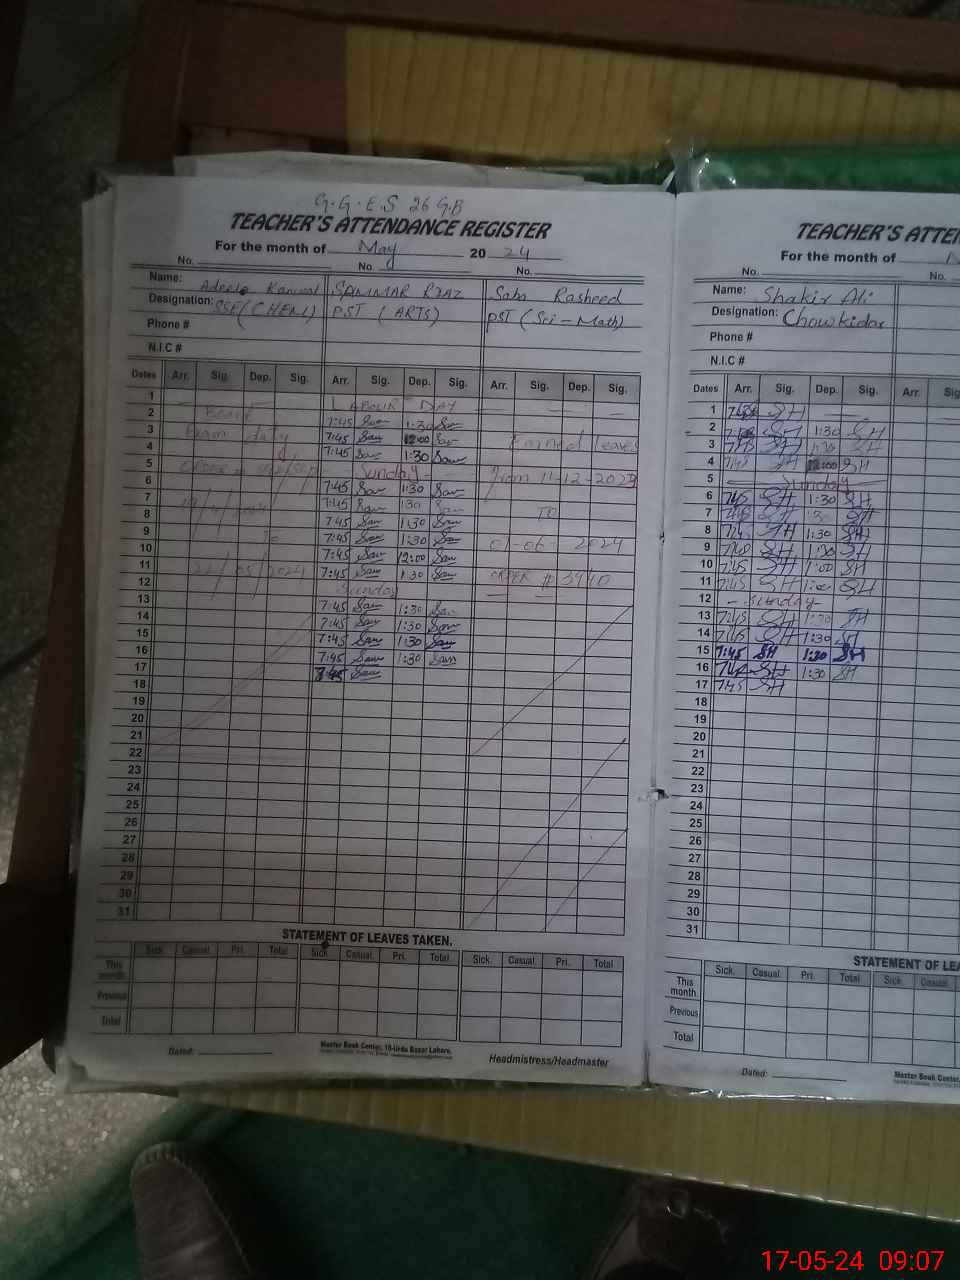 G.G.E.S 26 G.B
TEACHER'S ATTENDANCE REGISTER
For the month of May 20 24
No. No. No.
Name: Adeela Kanwal SAMMAR RIAZ Saba Rasheed
Designation: SSE(CHEM) PST (ARTS) PST (Sci-Math)
Phone #
N.I.C #
Dates Arr. Sig. Dep. Sig. Arr. Sig. Dep. Sig. Arr. Sig. Dep. Sig.
1 LABOUR DAY
2 Board 7:45 Sam 1:30 Sam
3 Exam duty 7:45 Sam 12:00 Sam Earned leaves
4 7:45 Sam 1:30 Sam
5 Sunday From 11-12-2023
6 7:45 Sam 1:30 Sam
7 7:45 Sam 1:30 Sam
8 7:45 Sam 1:30 Sam TO
9 To 7:45 Sam 1:30 Sam
10 7:45 Sam 12:00 Sam 01-06-2024
11 22/05/2024 7:45 Sam 1:30 Sam
12 Sunday ORDER # 3940
13 7:45 Sam 1:30 Sam
14 7:45 Sam 1:30 Sam
15 7:45 Sam 1:30 Sam
16 7:45 Sam 1:30 Sam
17 7:45 Sam
18
19
20
21
22
23
24
25
26
27
28
29
30
31
STATEMENT OF LEAVES TAKEN.
Sick. Casual. Pri. Total Sick. Casual. Pri. Total. Sick. Casual. Pri. Total
This month
Previous
Total
Dated:
Master Book Center, 18-Urdu Bazar Lahore.
Headmistress/Headmaster
TEACHER'S ATTEN
For the month of
No. No.
Name: Shakir Ali
Designation: Chowkidar
Phone #
N.I.C #
Dates Arr. Sig. Dep. Sig. Arr. Sig
1 7:45 SH
2 7:45 SH 1:30 SH
3 7:45 SH 1:30 SH
4 7:45 SH 12:00 SH
5 Sunday
6 7:45 SH 1:30 SH
7 7:45 SH 1:30 SH
8 7:45 SH 1:30 SH
9 7:45 SH 1:30 SH
10 7:45 SH 1:00 SH
11 7:45 SH 1:00 SH
12 Sunday
13 7:45 SH 1:30 SH
14 7:45 SH 1:30 SH
15 7:45 SH 1:30 SH
16 7:45 SH 1:30 SH
17 7:45 SH
18
19
20
21
22
23
24
25
26
27
28
29
30
31
STATEMENT OF LEA
Sick. Casual Pri. Total Sick. Casual.
This month
Previous
Total
Dated:
Master Book Center,
17-05-24 09:07